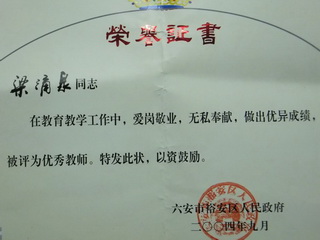 榮譽証書
梁滴泉同志
在教育教学工作中，爱岗敬业，无私奉献，做出优异成绩，
被评为优秀教师。特发此状，以资鼓励。
六安市裕安区人民政府
二〇〇四年九月